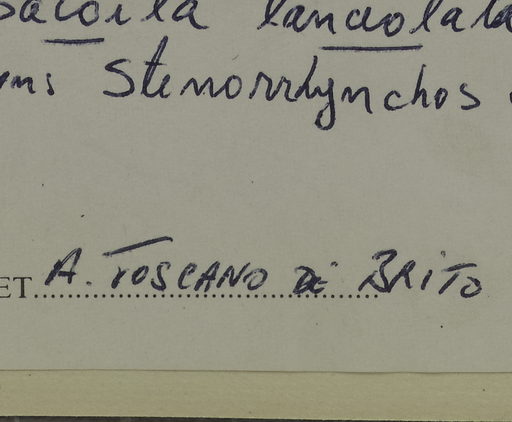 sacoila lanceolata
Stenorrhynchos
ET A. TOSCANO DE BRITO